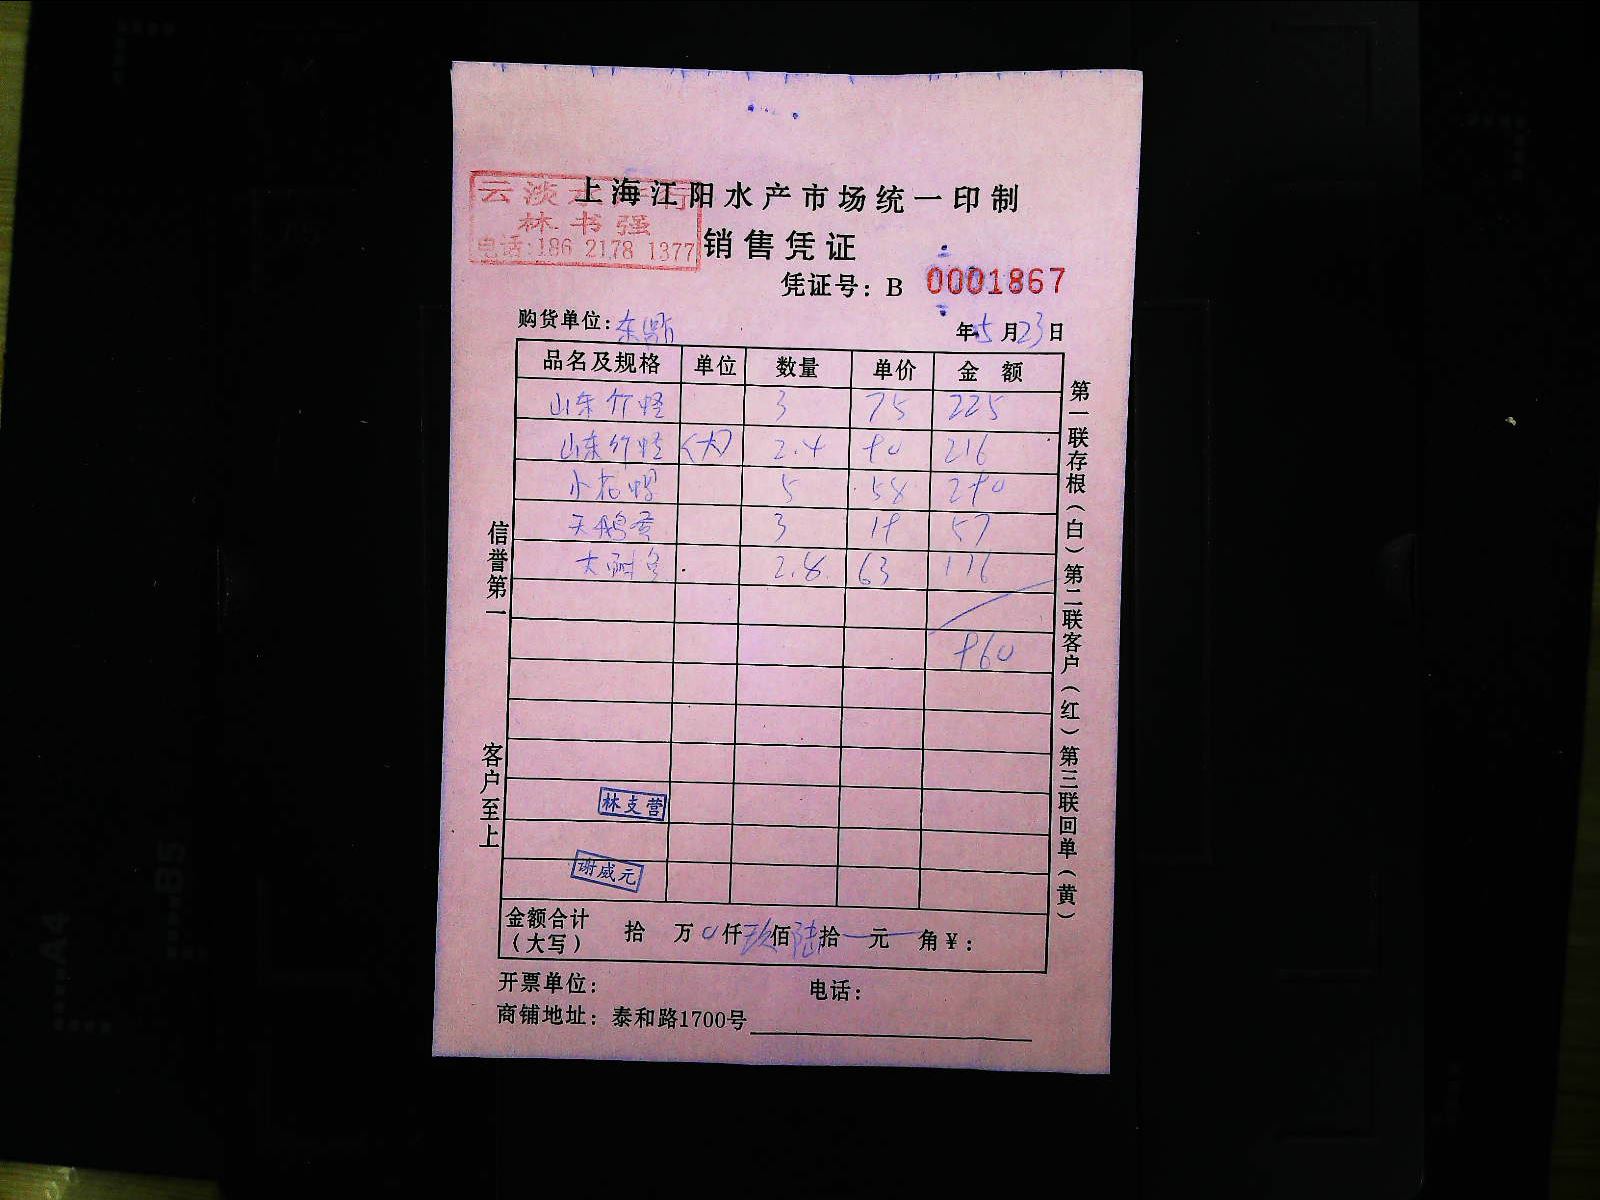 上海江阳水产市场统一印制
云淡水
林书强
电话:186 2178 1377
销售凭证
凭证号: B 0001867
购货单位: 东
年5月23日
品名及规格 单位 数量 单价 金额
山东竹蛏 3 75 225
山东竹蛏 (大) 2.4 90 216
小花螺 5 58 290
天鹅蛋 3 19 57
大鲍 2.8 63 176
960
林支营
谢威元
金额合计(大写) 拾 万0仟玖佰陆拾 元 角¥:
开票单位: 电话:
商铺地址: 泰和路1700号
信誉第一 客户至上
第一联存根(白)第二联客户(红)第三联回单(黄)